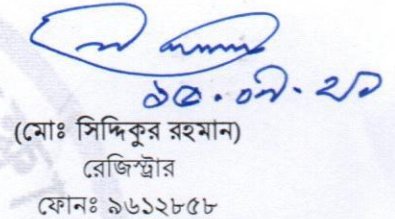 (মোঃ সিদ্দিকুর রহমান)
রেজিস্ট্রার
ফোনঃ ৯৬১২৮৫৮